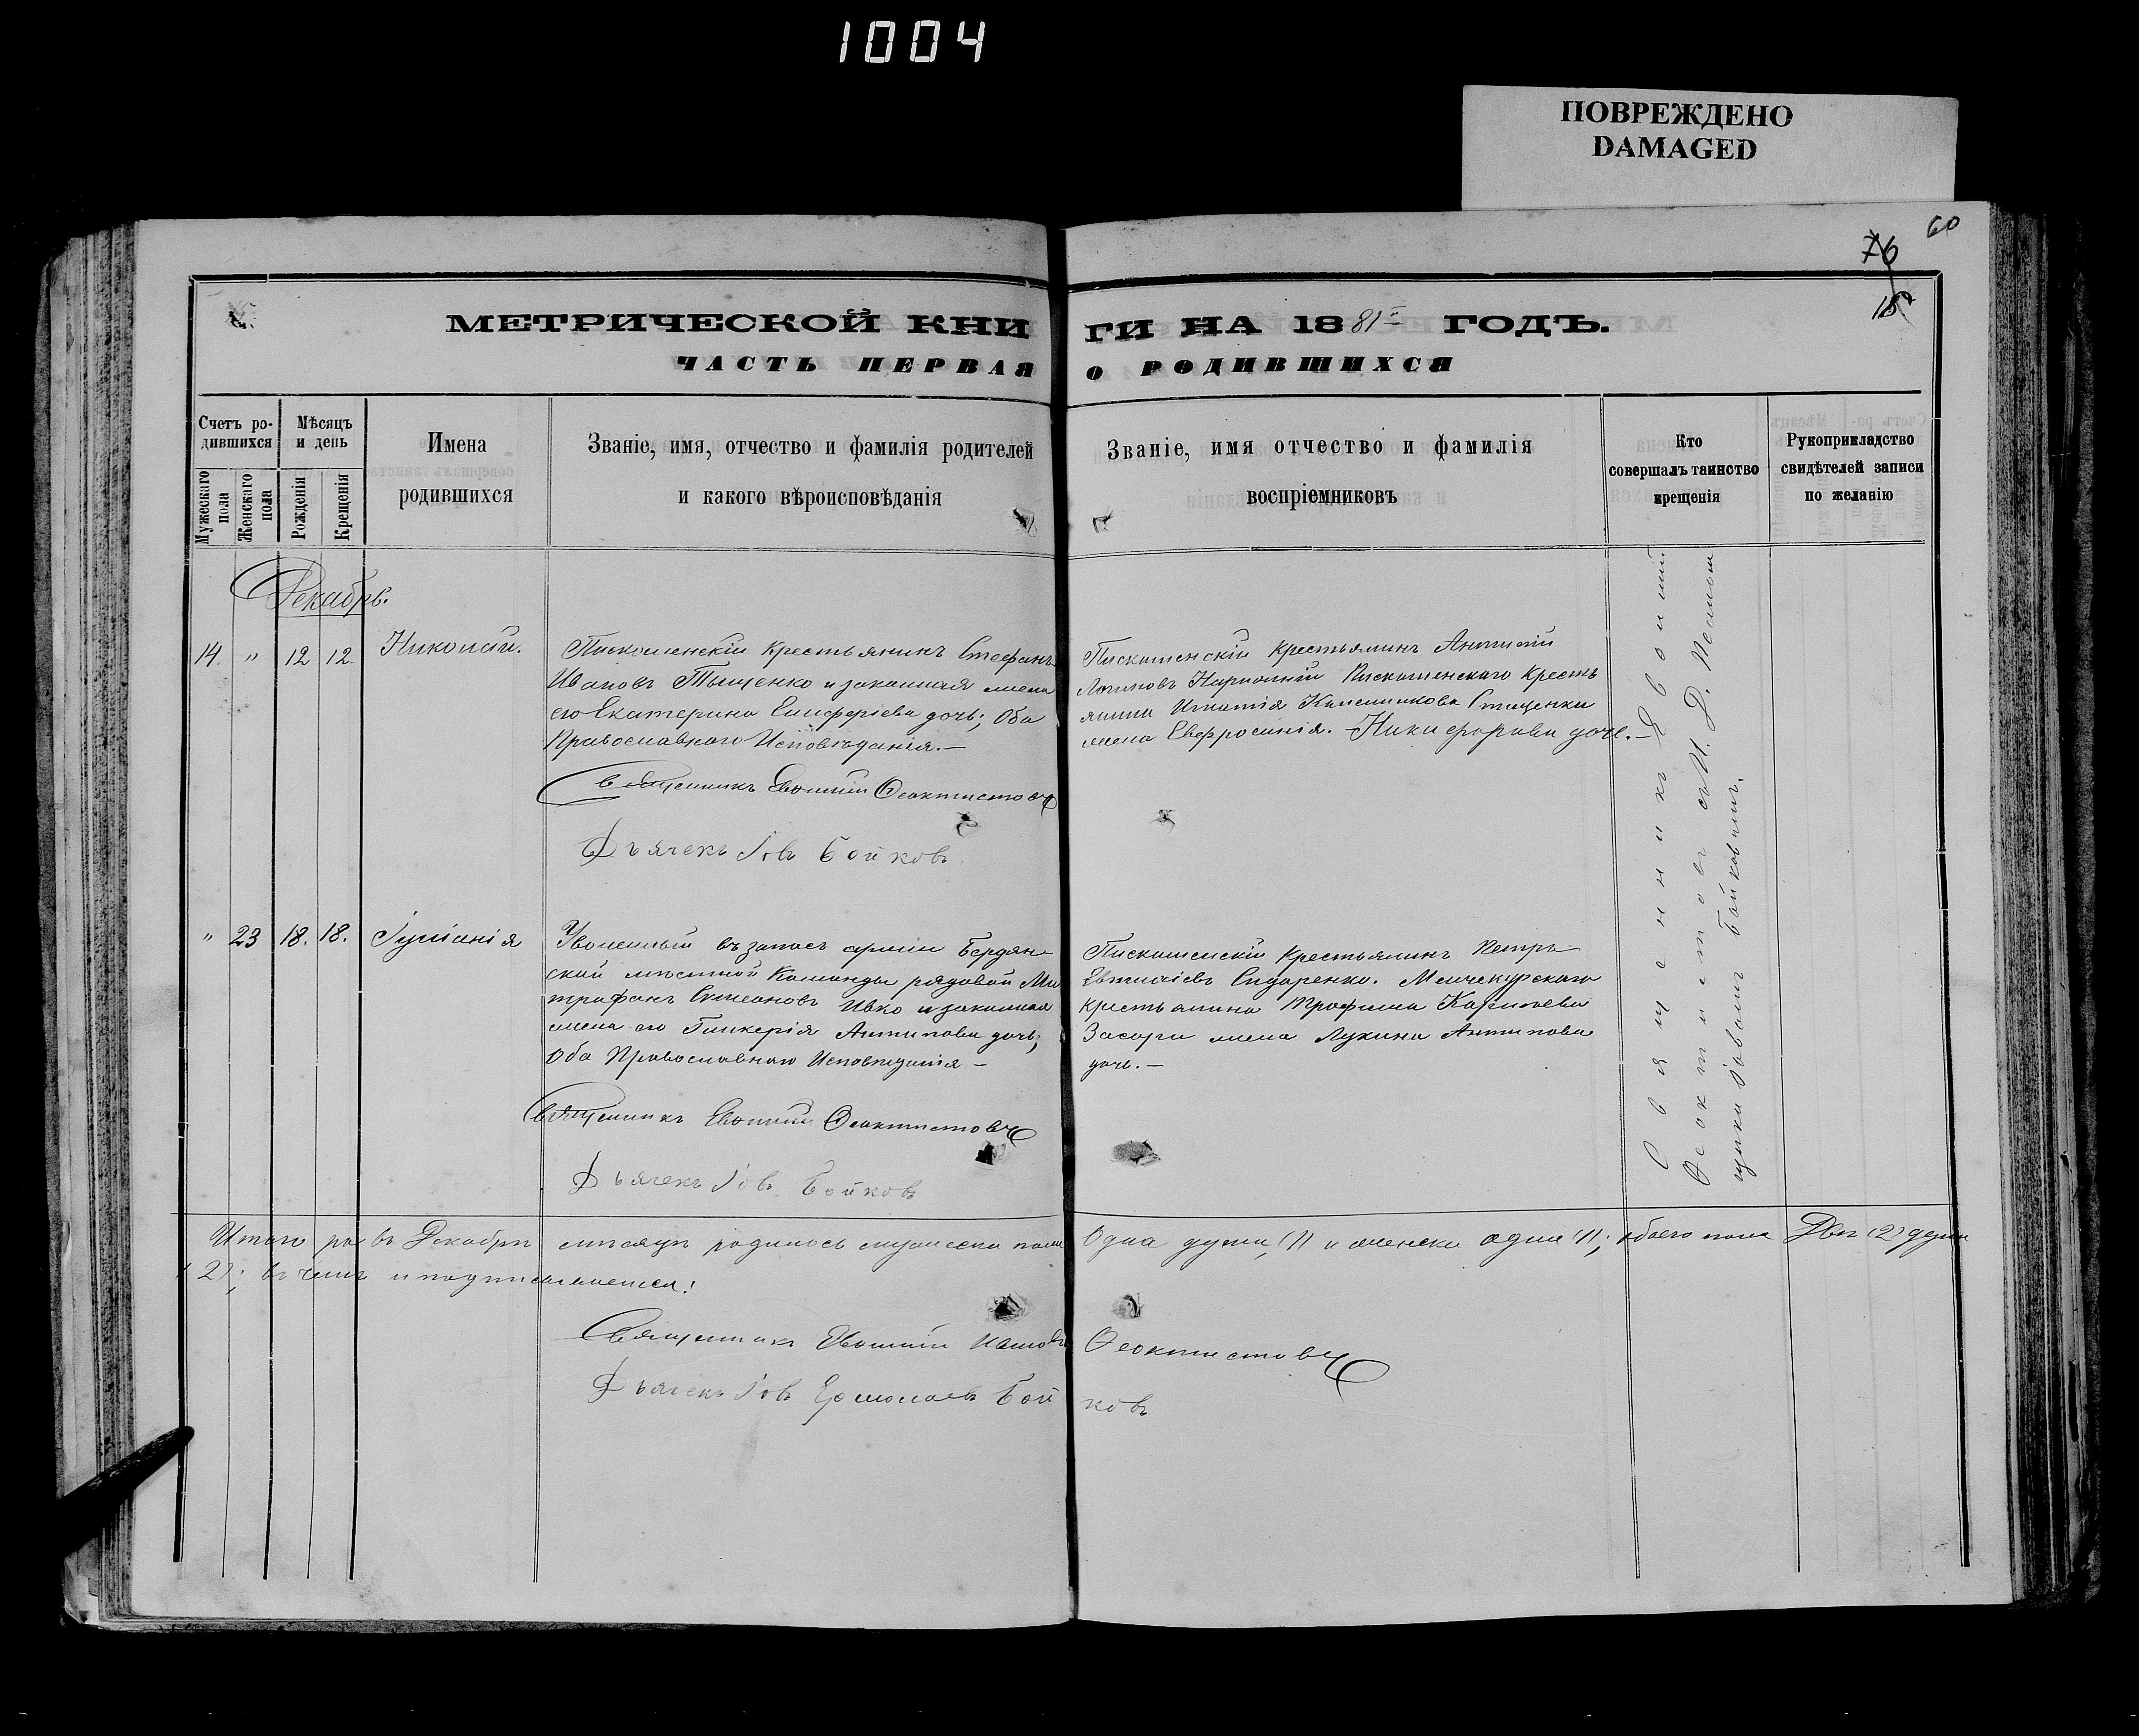 1004
ПОВРЕЖДЕНО
DAMAGED
60
76
18
МЕТРИЧЕСКОЙ КНИ ГИ НА 1881й ГОДЪ.
ЧАСТЬ ПЕРВАЯ О РОДИВШИХСЯ
Счетъ ро-
дившихся
Мужескаго пола
Женскаго пола
Мѣсяцъ
и день
Рожденія
Крещенія
Имена
родившихся
Званіе, имя, отчество и фамилія родителей
и какого вѣроисповѣданія
Званіе, имя отчество и фамилія
воспріемниковъ
Кто
совершалъ таинство
крещенія
Рукоприкладство
свидѣтелей записи
по желанію
Декабрь.
14. " 12 12. Николай.
Пискошенскій крестьянинъ Стефанъ
Ивановъ Тыщенко и законная жена
его Екатерина Елиферіева дочь; Оба
Православнаго Исповѣданія.—
Священникъ Евѳимій Ѳеоктистовъ
Дьячекъ Іовъ Бойковъ
Пискошенскій крестьянинъ
Логиновъ Пискошенскаго кресть
янина Игнатія
жена Евфросинія. Никифорова дочь.—
" 23 18. 18. Іуліанія
Уволенный въ запасъ арміи Бердян-
ской мѣстной Команды рядовой Ми
трофанъ Симеоновъ Ивко и законная
жена его Гликерія Антипова дочь;
Оба Православнаго Исповѣданія —
Священникъ Евѳимій Ѳеоктистовъ
Дьячекъ Іовъ Бойковъ
Пискошенскій Крестьянинъ Петръ
Евтихіевъ Сидоренко. Мелчекурскаго
крестьянина Трофима
жена Лукина Антипова
дочь.—
Священникъ Евѳимій
Ѳеоктистовъ съ И. Д. Псалом
щика Іовомъ Бойковымъ.
Итого въ Декабрѣ мѣсяцѣ родилось мужеска пола Одна душа (1) и женска одна (1); обоего пола Двѣ (2) души
(2); въ чемъ и подписываемся:
Священникъ Евѳимій Ѳеоктистовъ
Дьячекъ Іовъ Ермолаевъ Бойковъ